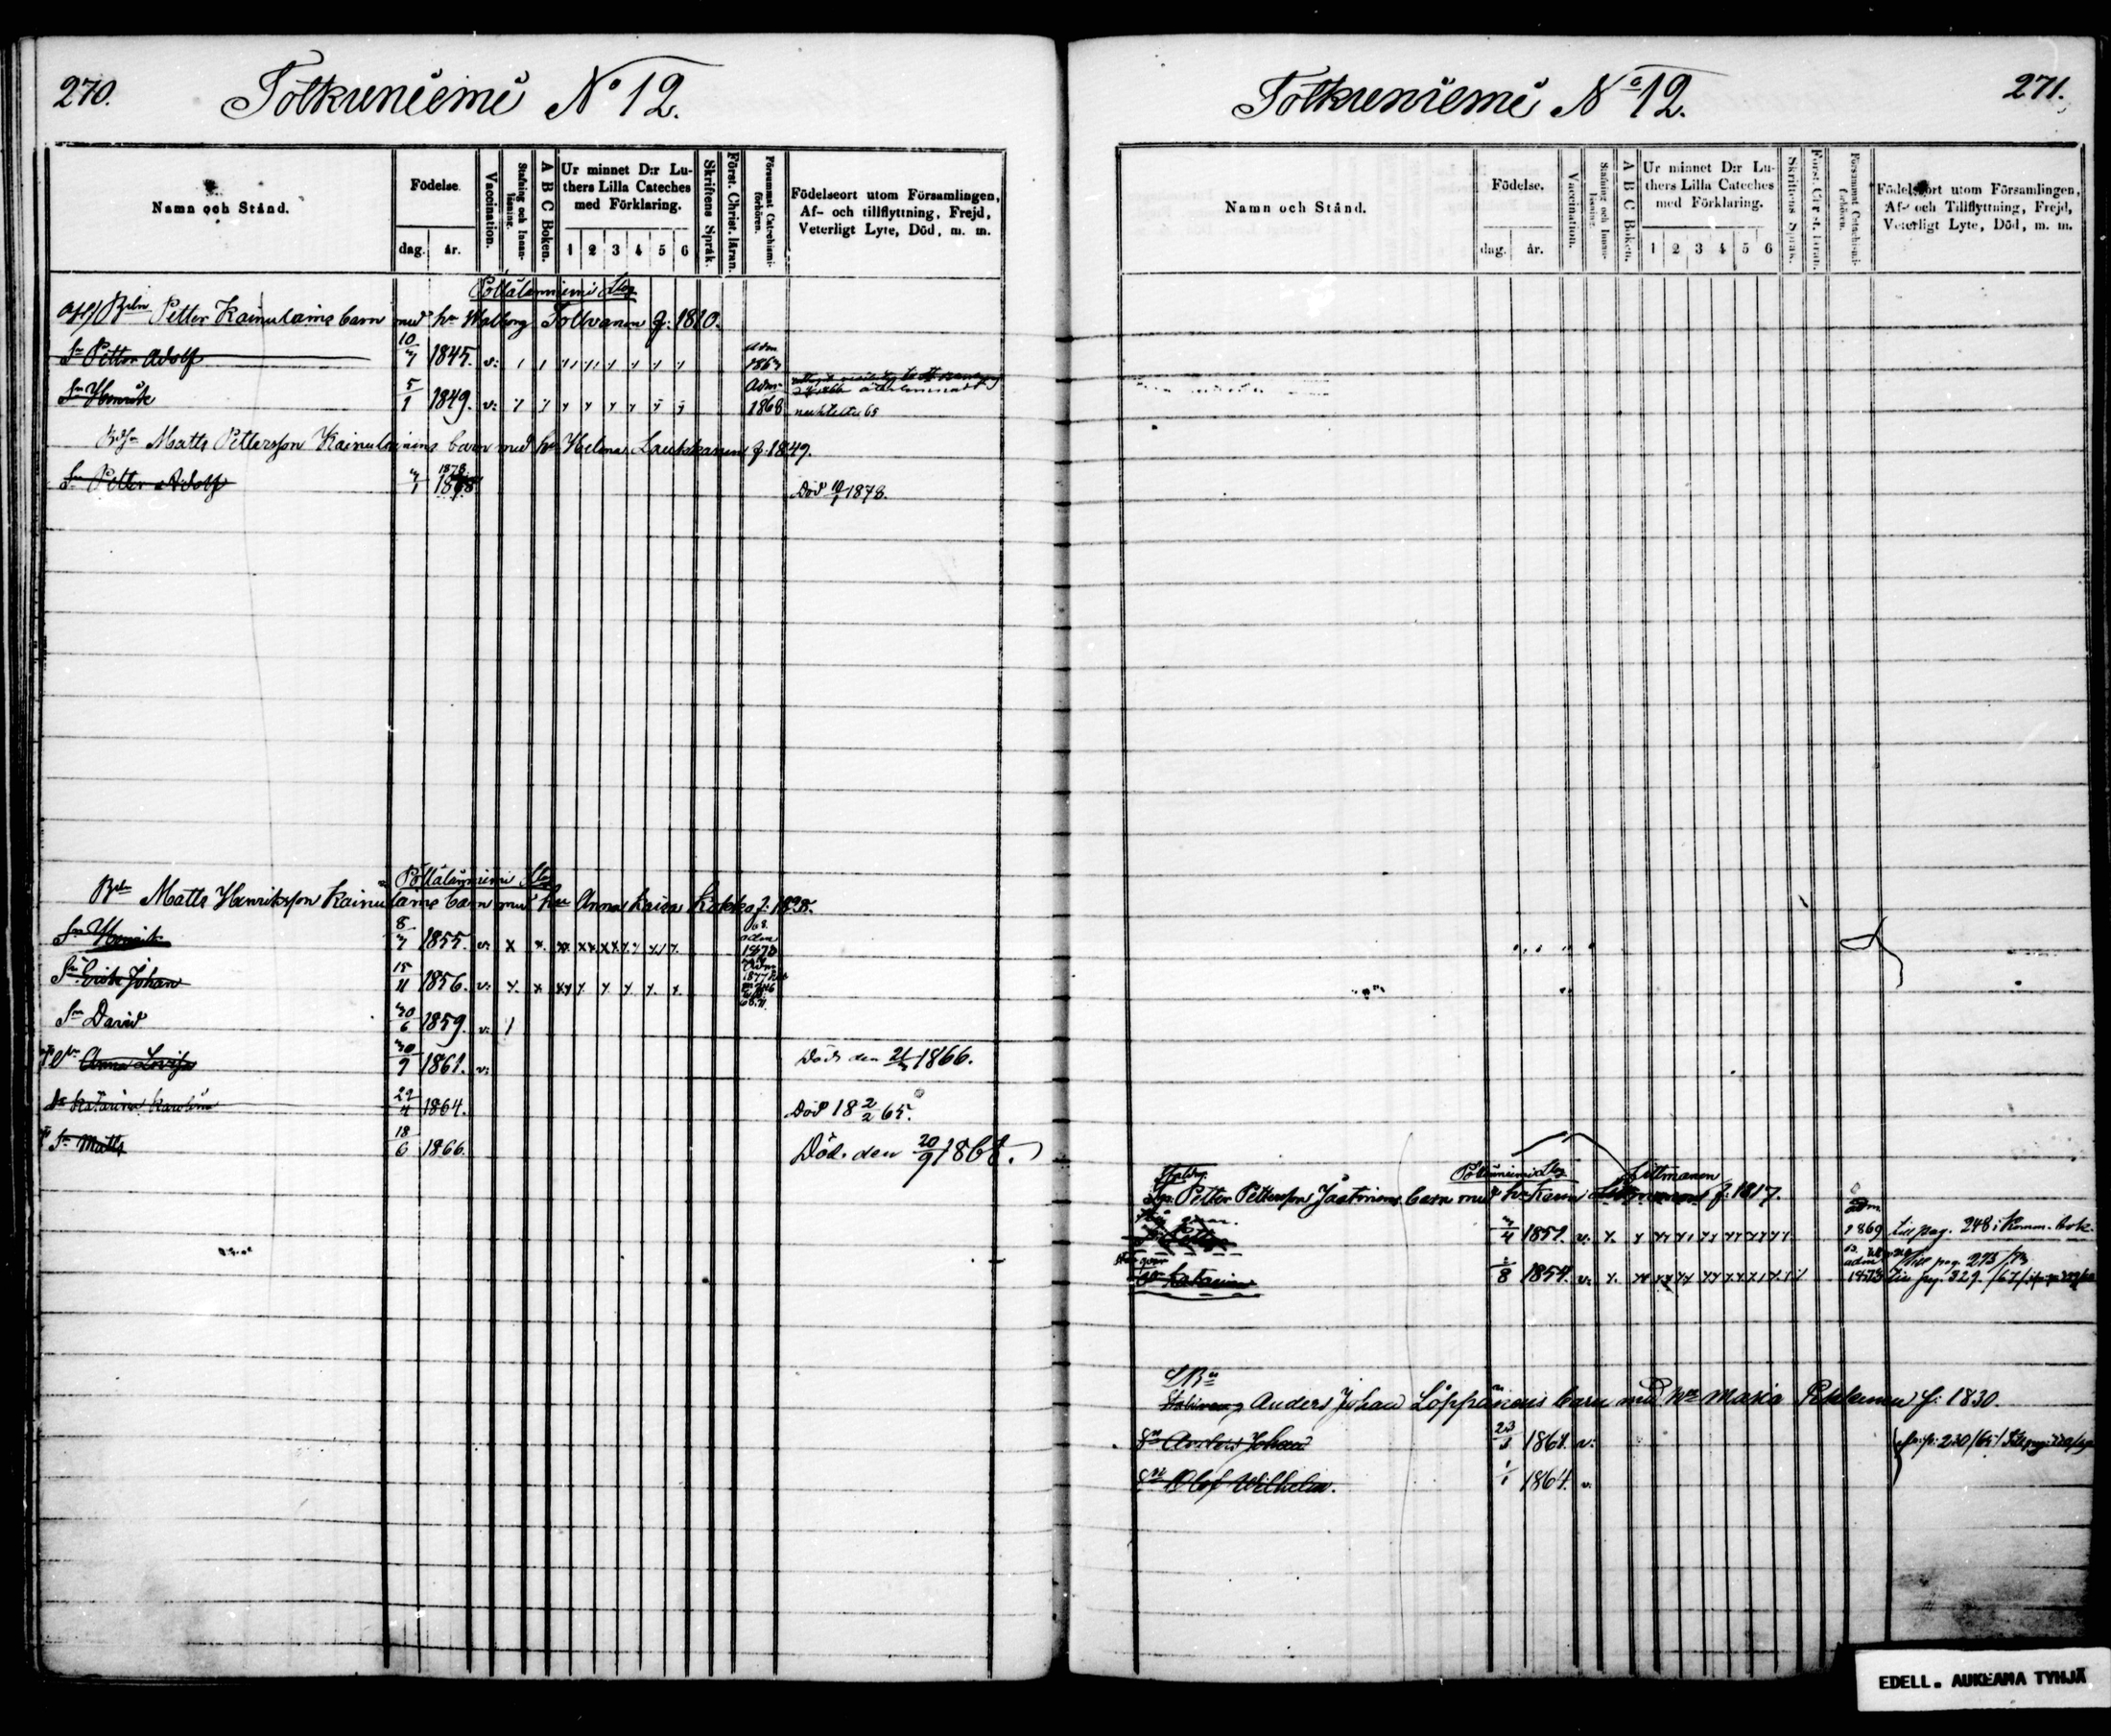 270.
Tolkuniemi No 12.
Namn och Stånd.
Födelse.
dag.
år.
Vaccination.
Stafning och Innan-läsning.
A B C Boken.
Ur minnet D:r Lu-
thers Lilla Cateches
med Förklaring.
1 2 3 4 5 6
Skriftens Språk.
Först. Christ. läran.
Försummat Catechismi-
förhören.
Födelseort utom Församlingen,
Af- och tillflyttning, Frejd,
Veterligt Lyte, Död, m. m.
Petter Kainulains barn med hu Walborg Tolvanen f. 1810.
Sn Petter Adolf 10/7 1845. v: Adm 1863
Sn Henrik 5/1 1849. v: Adm 1868
Matts Pettersson Kainulainens barn med hu Helena Laukkanen f. 1849.
Sn Petter Adolf 1878 Död 10/1 1878.
Pöllälänniemi
Matts Henriksson Kainulains barn med hu Anna Caisa Kokko f.
Sn Henrik 8/7 1855. v:
Sn Erik Johan 15/11 1856. v:
Sn David 30/6 1859. v:
Anna Lovisa 30/9 1861. v: Död den 1866.
Katarina Karolina 22/4 1864. Död 18 2/2 65.
Sn Matts 18/6 1866. Död. den 20/9 1868.
271.
Tolkuniemi No 12.
Namn och Stånd.
Födelse.
dag.
år.
Vaccination.
Stafning och Innan-
läsning.
A B C Boken.
Ur minnet D:r Lu-
thers Lilla Cateches
med Förklaring.
1 2 3 4 5 6
Skriftens Språk.
Först. Christ. läran.
Försummat Catechismi-
förhören.
Födelseort utom Församlingen,
Af- och Tillflyttning, Frejd,
Veterligt Lyte, Död, m. m.
Petter Pettersson barn med hu Karin f. 1817.
Sn Petter 1851. v: 1869 till pag. 248 i Komm. bok.
Katarina 8 1854. v: adm till pag. 329.
Anders Johan Löppönens barn med hu Maria f: 1830.
Sn Anders Johan 23/3 1861. v:
Sn Olof Wilhelm. 1/1 1864. v:
EDELL. AUKEAMA TYHJÄ